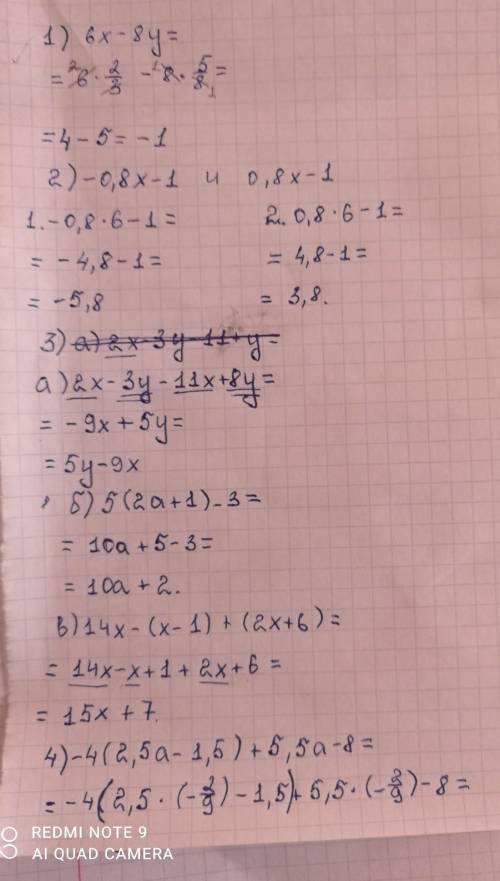 1) 6x - 8y =
= 6 · 2/3 - 8 · 5/8 =
= 4 - 5 = -1
2) -0,8x - 1 и 0,8x - 1
1. -0,8 · 6 - 1 = 2. 0,8 · 6 - 1 =
= -4,8 - 1 = = 4,8 - 1 =
= -5,8 = 3,8.
3) а) 2x - 3y - 11 + y =
а) 2x - 3y - 11x + 8y =
= -9x + 5y =
= 5y - 9x
б) 5(2a + 1) - 3 =
= 10a + 5 - 3 =
= 10a + 2.
в) 14x - (x - 1) + (2x + 6) =
= 14x - x + 1 + 2x + 6 =
= 15x + 7.
4) -4(2,5a - 1,5) + 5,5a - 8 =
= -4(2,5 · (-2/9) - 1,5) + 5,5 · (-2/9) - 8 =
REDMI NOTE 9
AI QUAD CAMERA